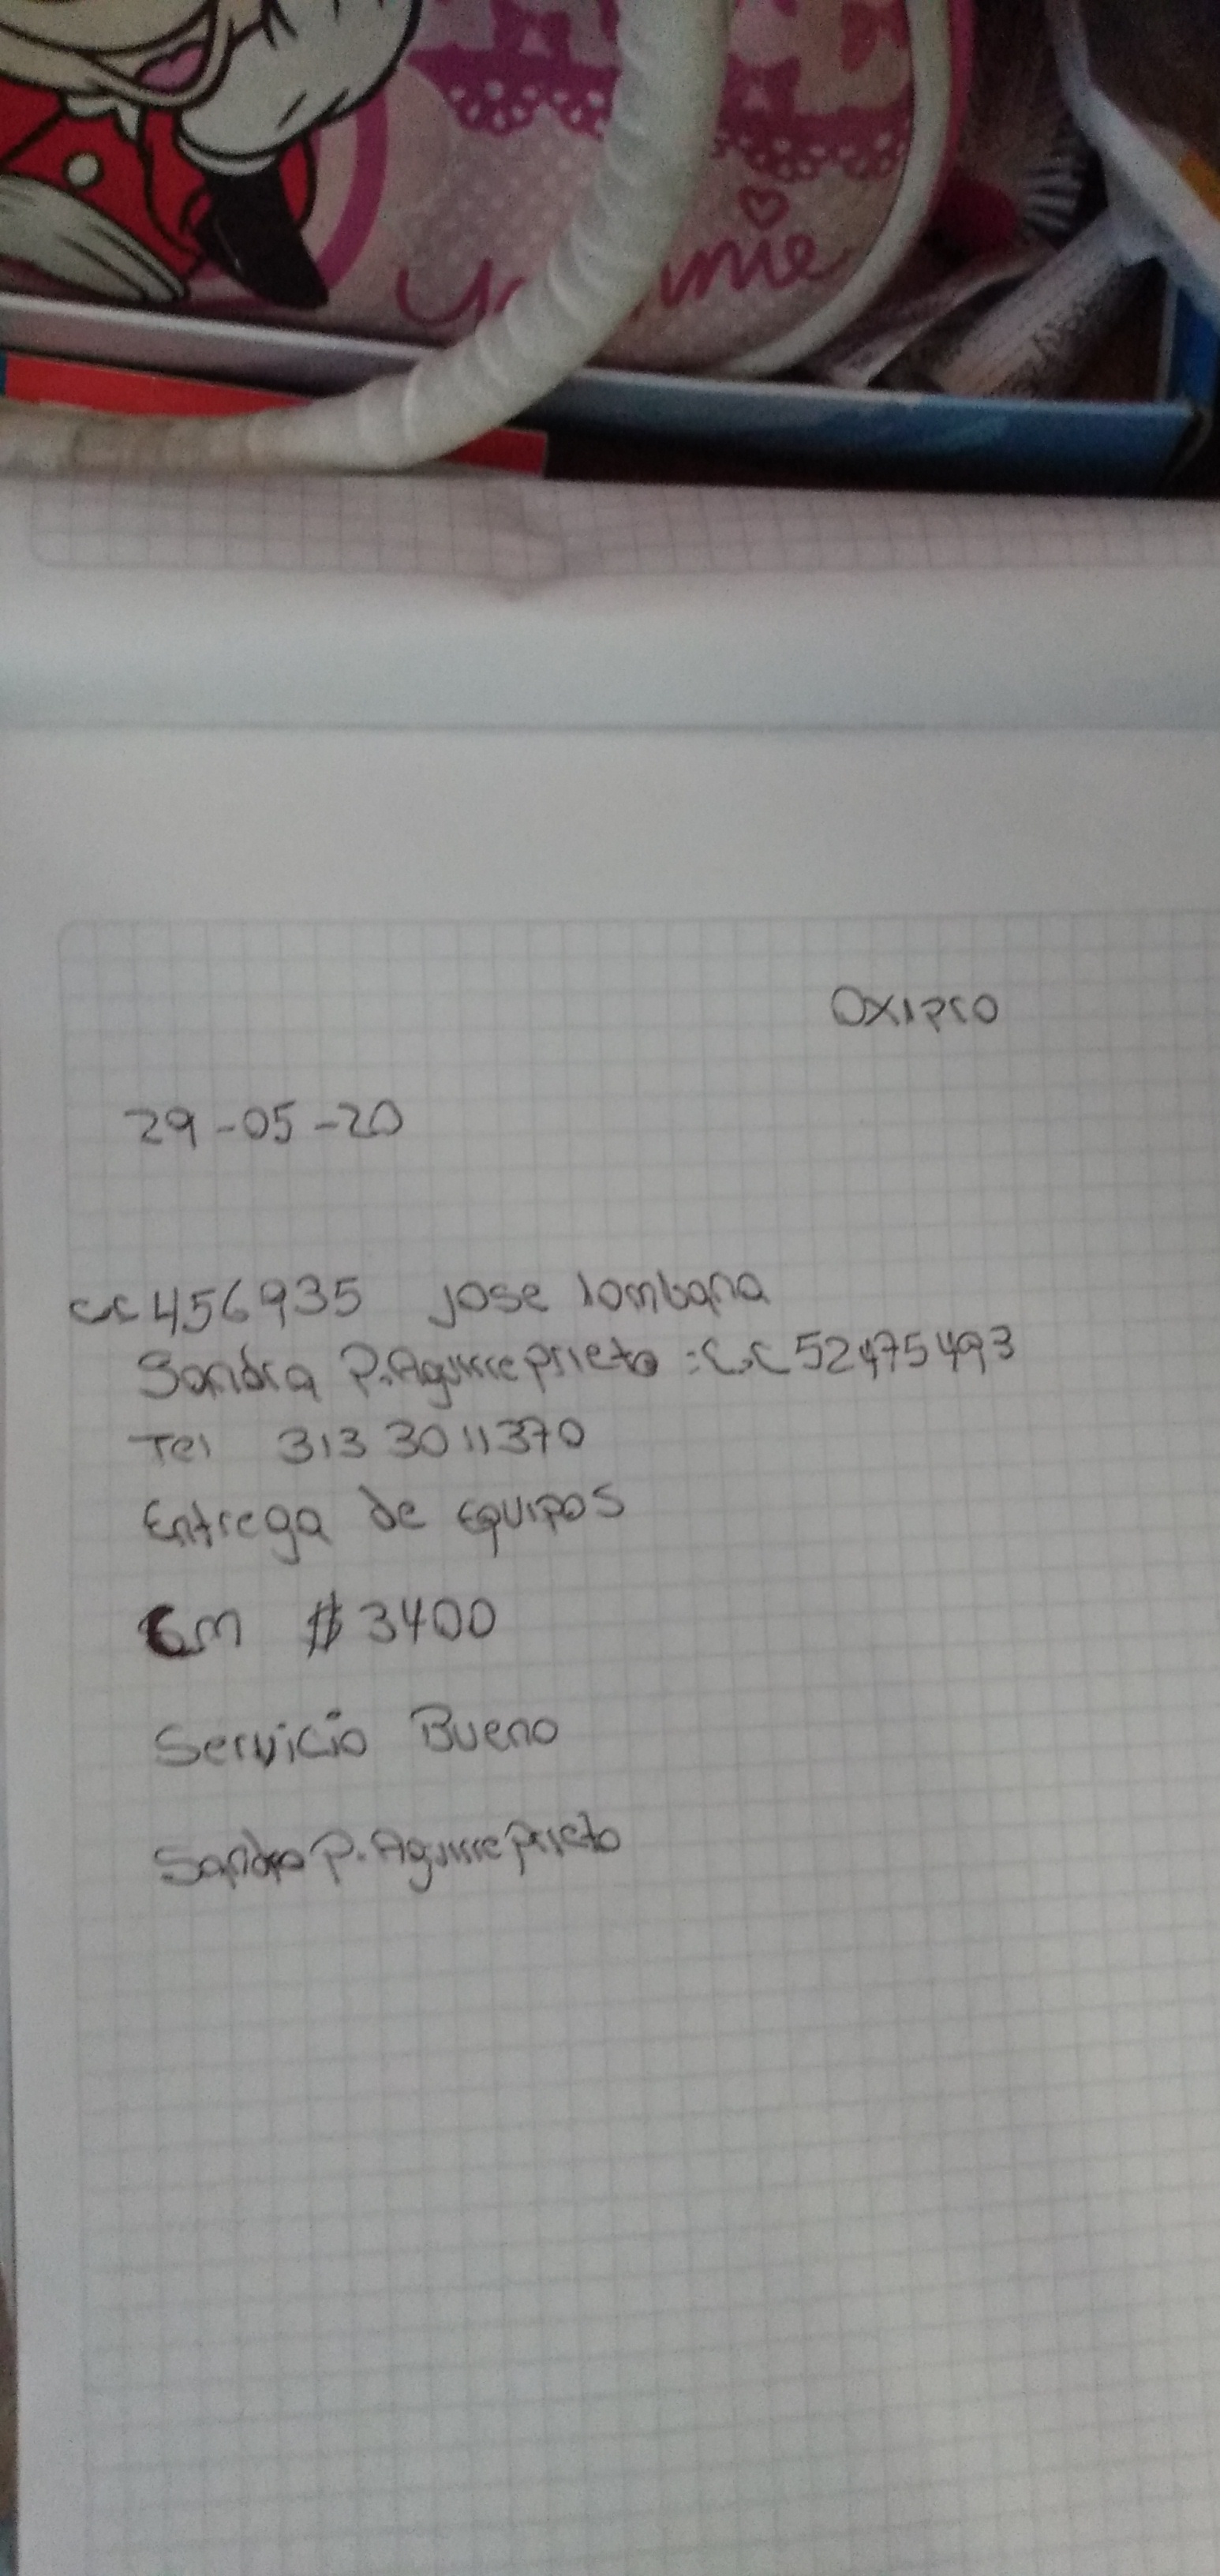 OXIPRO
29-05-20
cc 456935 Jose lombana
Sandra P. Aguirre prieto : C.C 52475493
Tel 313 3011370
Entrega de Equipos
CM $ 3400
Servicio Bueno
Sandra P. Aguirre Prieto